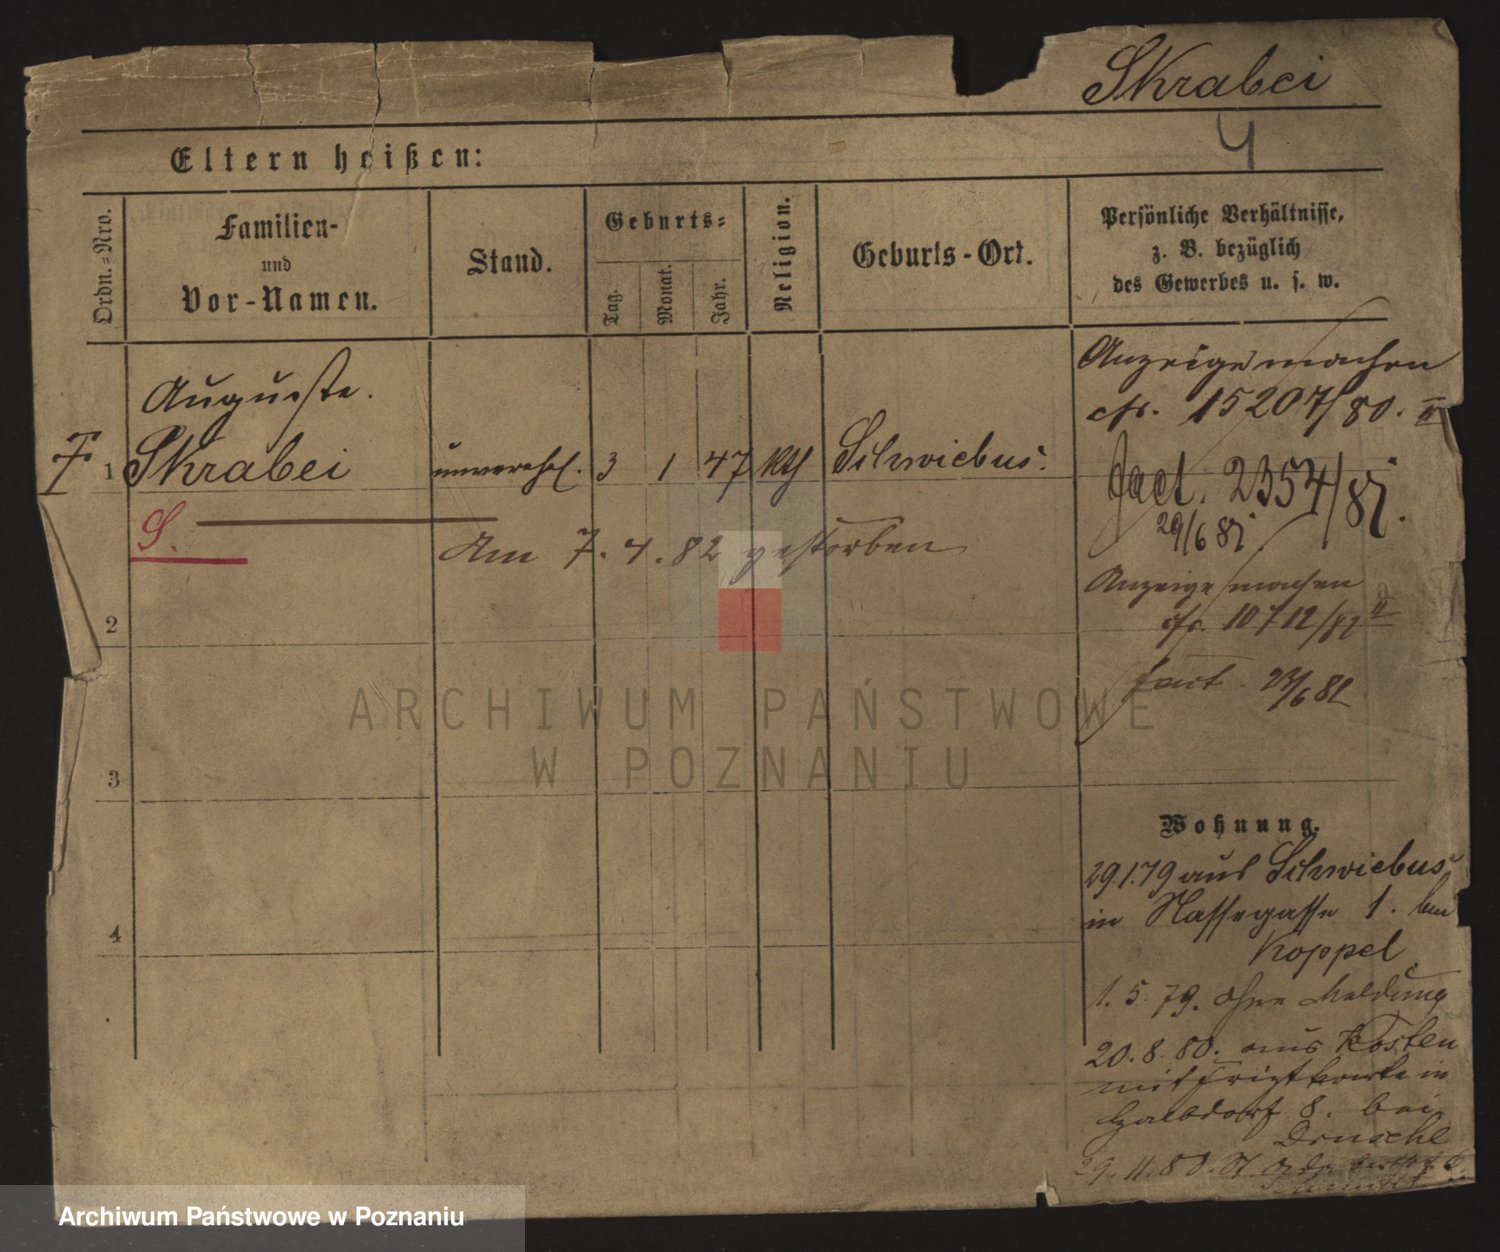 Skrabei
4
Eltern heißen:
Ordn.=Nro.
Familien-
und
Vor-Namen.
Stand.
Geburts=
Tag.
Monat.
Jahr.
Religion.
Geburts-Ort.
Persönliche Verhältnisse,
z. B. bezüglich
des Gewerbes u. s. w.
Auguste.
1 Skrabei unverehel. 3 1 47 kth Schwiebus.
S.
Am 7. 4. 82 gestorben
Anzeige machen
cfr. 15207/80. II
fact. 2354/81.
29/6 81
Anzeige machen
cfr. 10712/82 II
fact. 23/6 82
2
3
4
Wohnung.
29.1.79 aus Schwiebus
in Nassegasse 1. bei
Koppel
1. 5. 79. ohne Meldung
20. 8. 80. aus Kosten
mit in
Halbdorf 8. bei
29. 11. 80. St.
ARCHIWUM PAŃSTWOWE
W POZNANIU
Archiwum Państwowe w Poznaniu